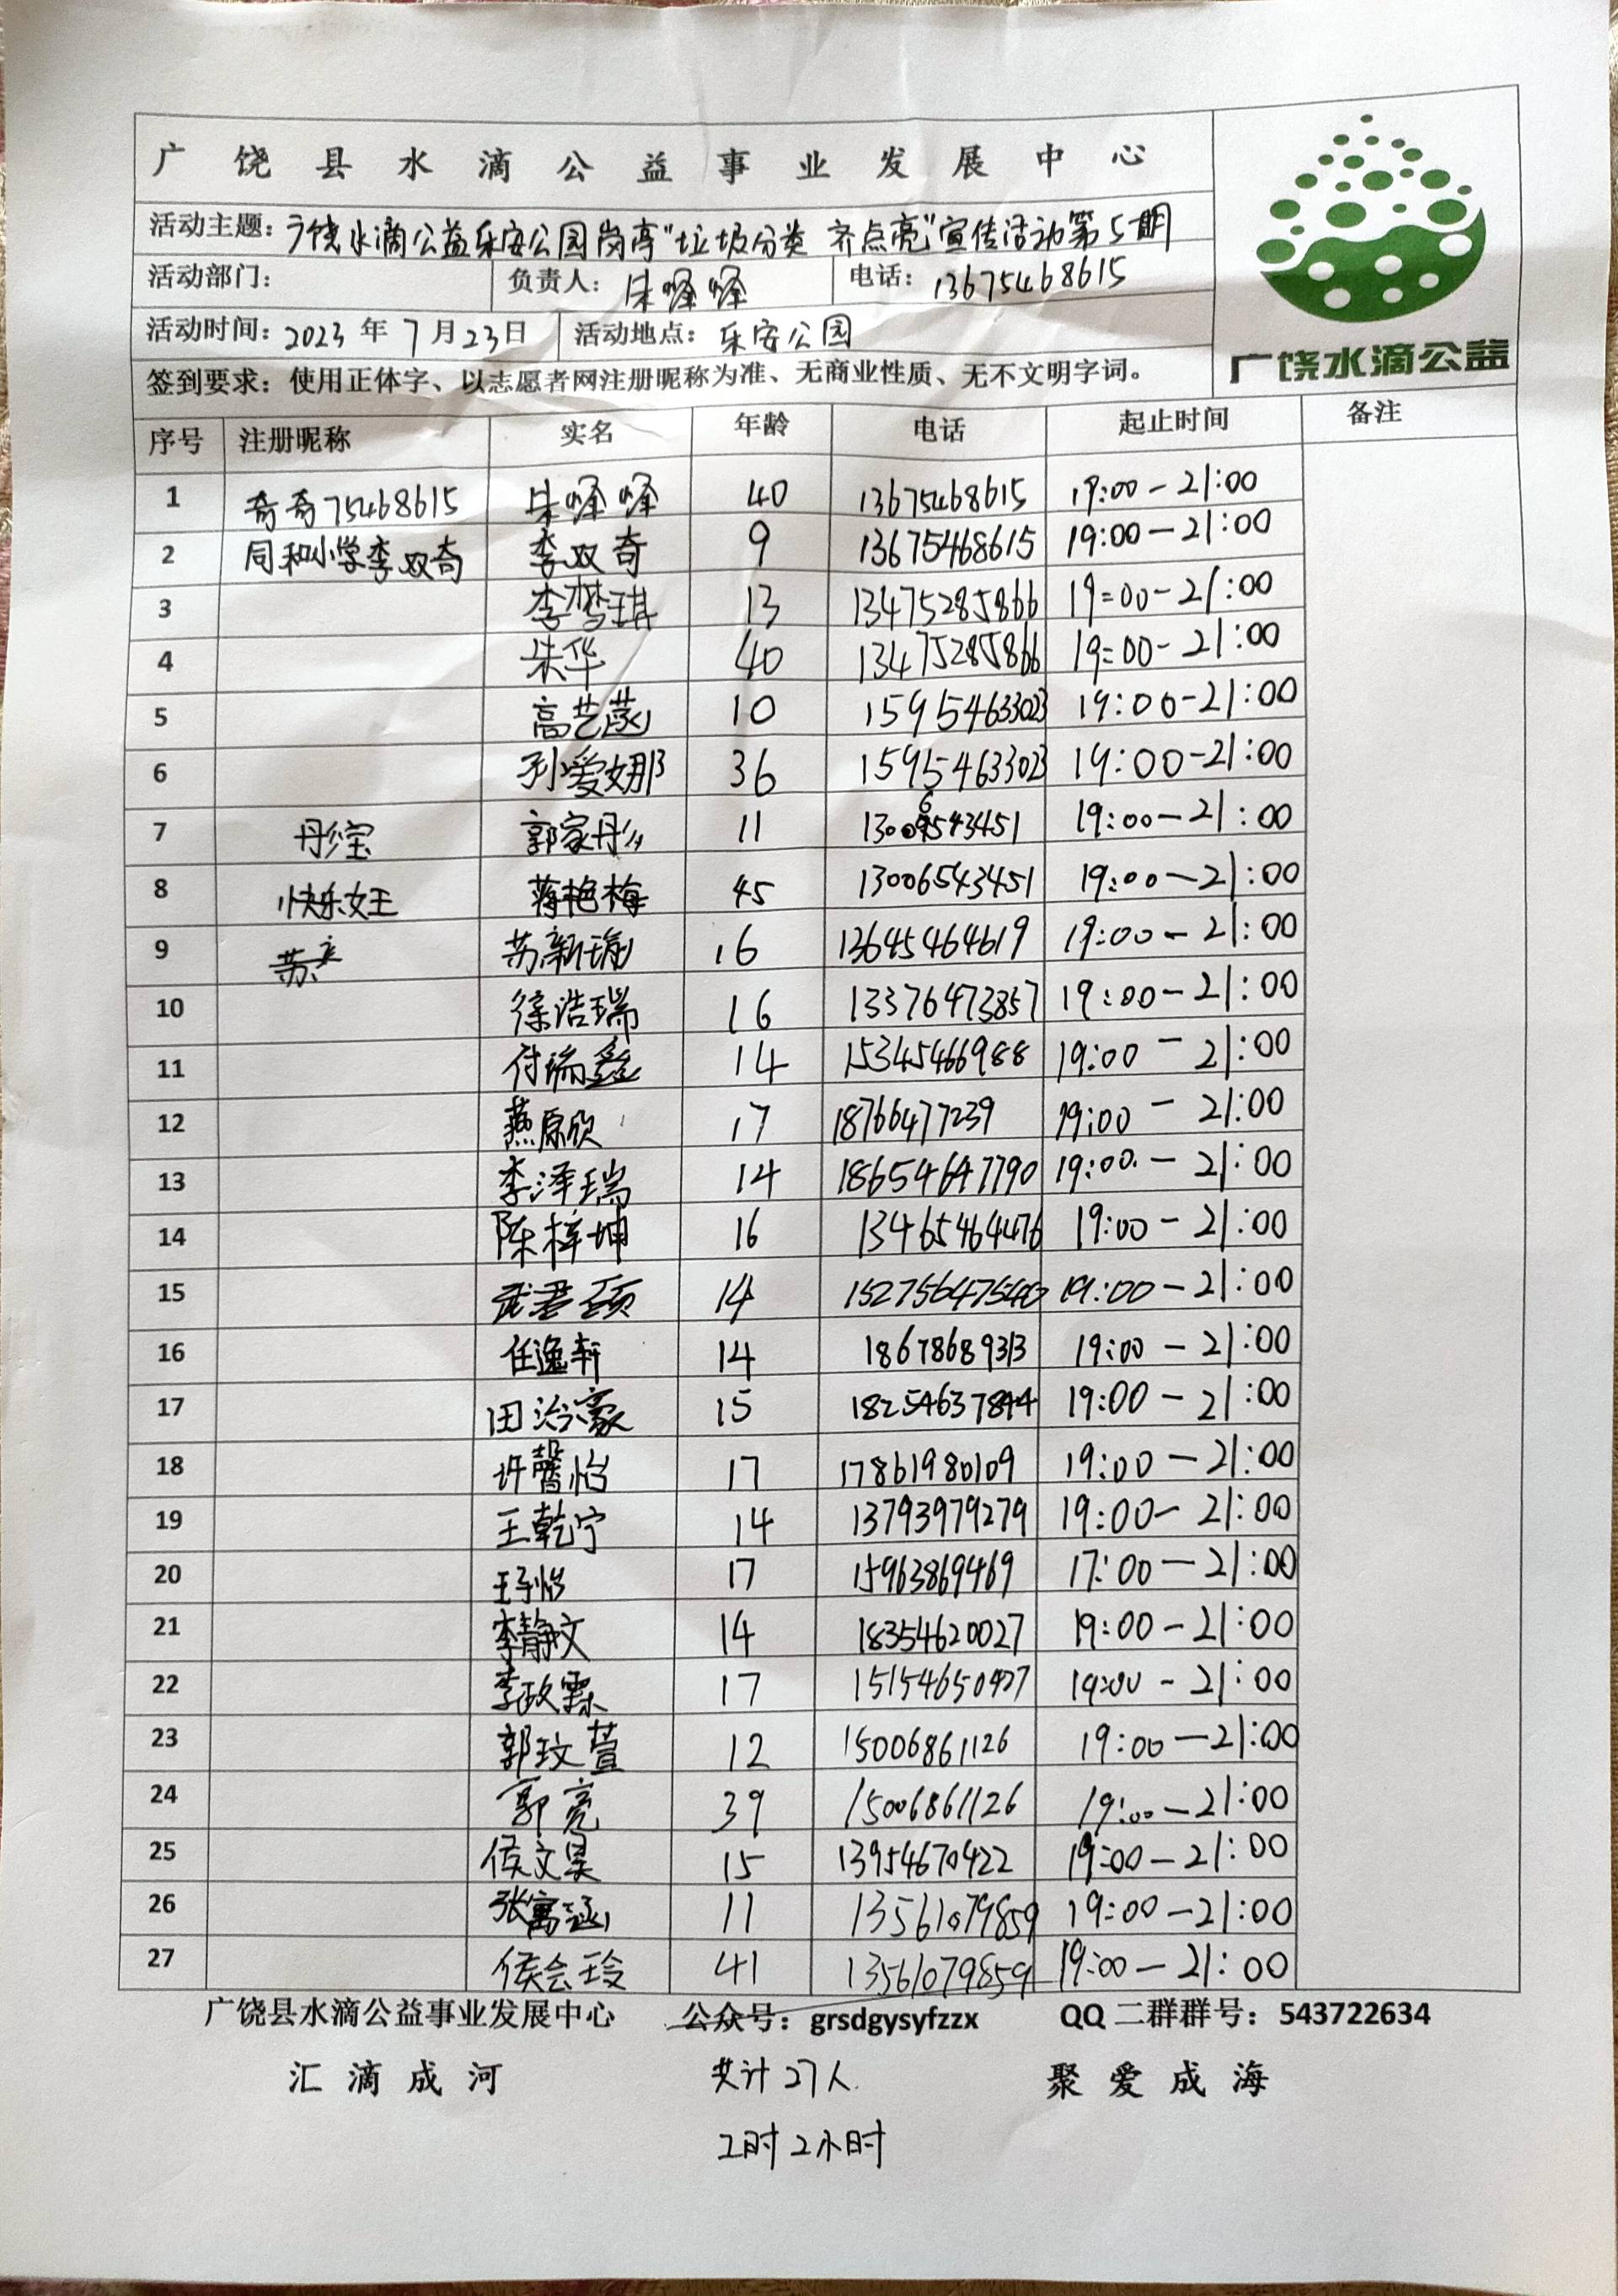 广饶县水滴公益事业发展中心
活动主题：广饶水滴公益乐安公园岗亭“垃圾分类 齐点亮”宣传活动第5期
活动部门： 负责人：朱峰峰 电话：13675468615
活动时间：2023年7月23日 活动地点：乐安公园
签到要求：使用正体字、以志愿者网注册昵称为准、无商业性质、无不文明字词。
广饶水滴公益
序号 注册昵称 实名 年龄 电话 起止时间 备注
1 奇奇75468615 朱峰峰 40 13675468615 19:00-21:00
2 同和小学李双奇 李双奇 9 13675468615 19:00-21:00
3 李梦琪 13 13475285866 19:00-21:00
4 朱华 40 13475285866 19:00-21:00
5 高艺菡 10 15954633023 19:00-21:00
6 孙爱娜 36 15954633023 19:00-21:00
7 郭家彤 11 13006543451 19:00-21:00
8 快乐女王 蒋艳梅 45 13006543451 19:00-21:00
9 苏新瑞 16 13645464619 19:00-21:00
10 徐浩瑞 16 13376473857 19:00-21:00
11 付瑞鑫 14 15345466988 19:00-21:00
12 燕原欣 17 18766477239 19:00-21:00
13 李泽瑞 14 18654647790 19:00-21:00
14 陈梓坤 16 13465464476 19:00-21:00
15 14 19:00-21:00
16 任逸轩 14 18678689313 19:00-21:00
17 田治豪 15 18254637844 19:00-21:00
18 许馨怡 17 17861980109 19:00-21:00
19 王乾宁 14 13793979279 19:00-21:00
20 王子怡 17 15963869469 17:00-21:00
21 李静文 14 18354620027 19:00-21:00
22 李政霖 17 15154650427 19:00-21:00
23 郭玟萱 12 15006861126 19:00-21:00
24 郭亮 39 15006861126 19:00-21:00
25 侯文昊 15 13954670422 19:00-21:00
26 张寓涵 11 13561079859 19:00-21:00
27 侯会玲 41 13561079859 19:00-21:00
广饶县水滴公益事业发展中心 公众号：grsdgysyfzzx QQ二群群号：543722634
汇滴成河 共计27人 聚爱成海
工时2小时